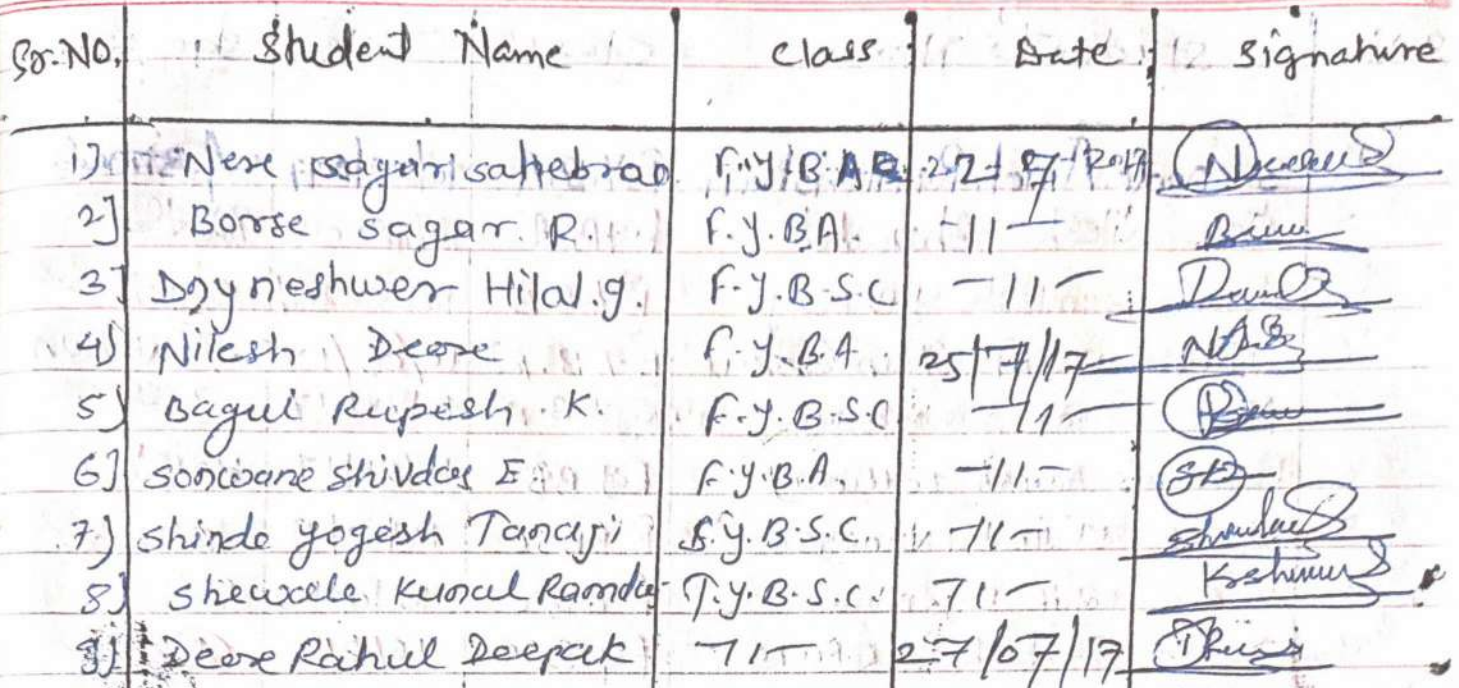 Sr.No. Student Name Class Date Signature
1] Nere sagar sahebrao F.Y.B.A 22-7-2017
2] Borse sagar. R. F.Y.B.A. -11-
3] Dnyneshwer Hilal.g. F.Y.B.S.C -11-
4) Nilesh Deore F.Y.B.A 25/7/17
5) Bagul Rupesh .K. F.Y.B.S.C -11-
6] sonwane shivdas E F.Y.B.A. -11-
7) shinde yogesh Tanaji S.Y.B.S.C. -11-
8] shewale Kunal Ramdas T.Y.B.S.C. -11-
9] Deore Rahul Deepak -11- 27/07/17